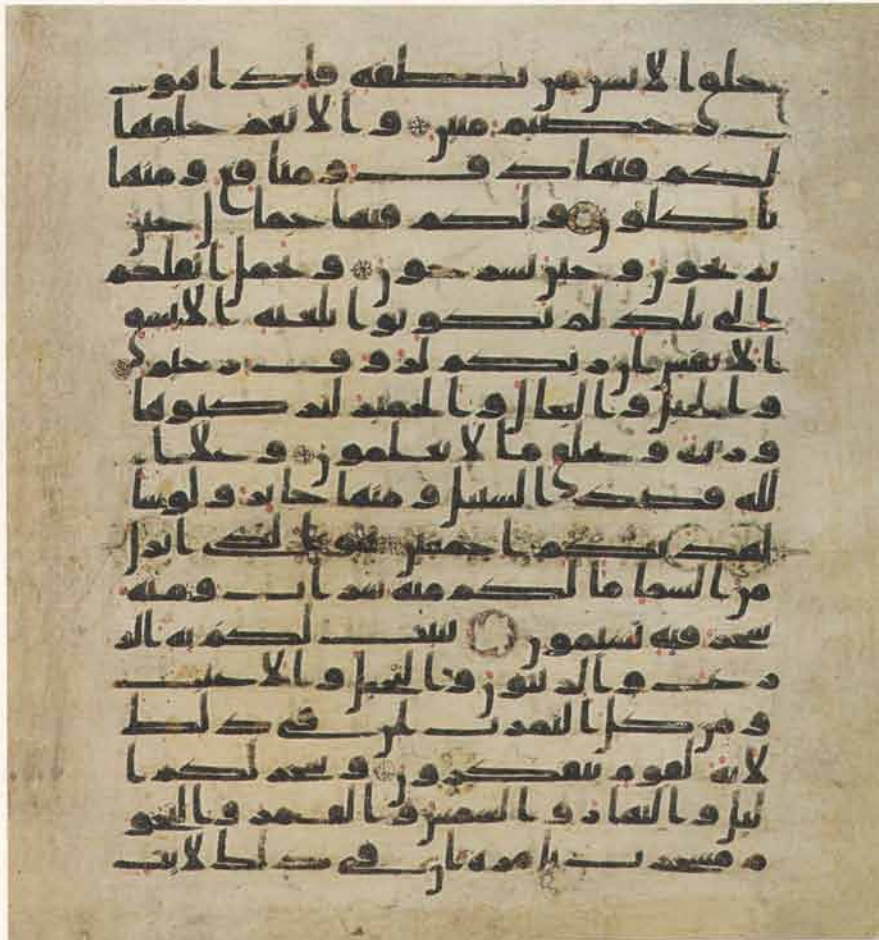 خلق الانسن من نطفه فاذا هو
خصيم مبين والانعم خلقها
لكم فيها دف ومنافع ومنها
تاكلون ولكم فيها جمال حين
تريحون وحين تسرحون وتحمل اثقلكم
الى بلد لم تكونوا بلغيه الا بشق
الانفس ان ربكم لروف رحيم
والخيل والبغال والحمير لتركبوها
وزينة ويخلق ما لا تعلمون وعلا ا
لله قصد السبيل ومنها جاير ولو شا
لهديكم اجمعين هو الذي انزل
من السما ما لكم منه شراب ومنه
شجر فيه تسيمون ينبت لكم به الز
رع والزيتون والنخيل والاعنب
ومن كل الثمرت ان في ذلك
لاية لقوم يتفكرون وسخر لكم ا
ليل والنهار والشمس والقمر والنجو
م مسخرت بامره ان في ذلك لايت